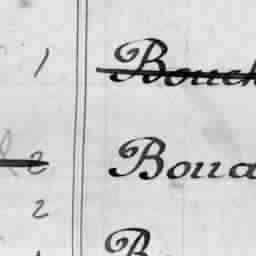 1 Bouck
2 Boua
2
B